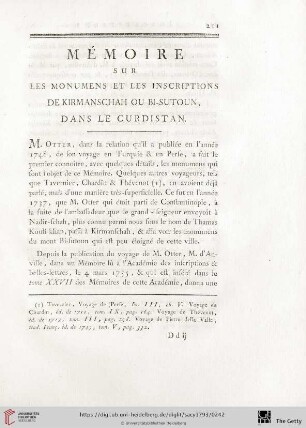 211
MÉMOIRE
SUR
LES MONUMENS ET LES INSCRIPTIONS
DE KIRMANSCHAH OU BI-SUTOUN,
DANS LE CURDISTAN.
M. OTTER, dans la relation qu'il a publiée en l'année
1748, de son voyage en Turquie & en Perse, a fait le
premier connoître, avec quelques détails, les monumens qui
sont l'objet de ce Mémoire. Quelques autres voyageurs, tels
que Tavernier, Chardin & Thévenot (1), en avoient déjà
parlé, mais d'une manière très-superficielle. Ce fut en l'année
1737, que M. Otter qui étoit parti de Constantinople, à
la suite de l'ambassadeur que le grand-seigneur envoyoit à
Nadir-schah, plus connu parmi nous sous le nom de Thamas
Kouli-khan, passa à Kirmanschah, & alla voir les monumens
du mont Bisutoun qui est peu éloigné de cette ville.
Depuis la publication du voyage de M. Otter, M. d'An-
ville, dans un Mémoire lû à l'Académie des inscriptions &
belles-lettres, le 4 mars & qui est inséré dans le
tome XXVII des Mémoires de cette Académie, donna une
(1) Tavernier, Voyage de Perse, liv. III, ch. V. Voyage de
Chardin, éd. de tom. IX, pag. Voyage de Thevenot,
éd. de tom. III, pag. Voyage de Pietro della Valle,
trad. franç. éd. de tom. V, pag.
D d ij
https://digi.ub.uni-heidelberg.de/diglit/sacy1793/0242
© Universitätsbibliothek Heidelberg
The Getty